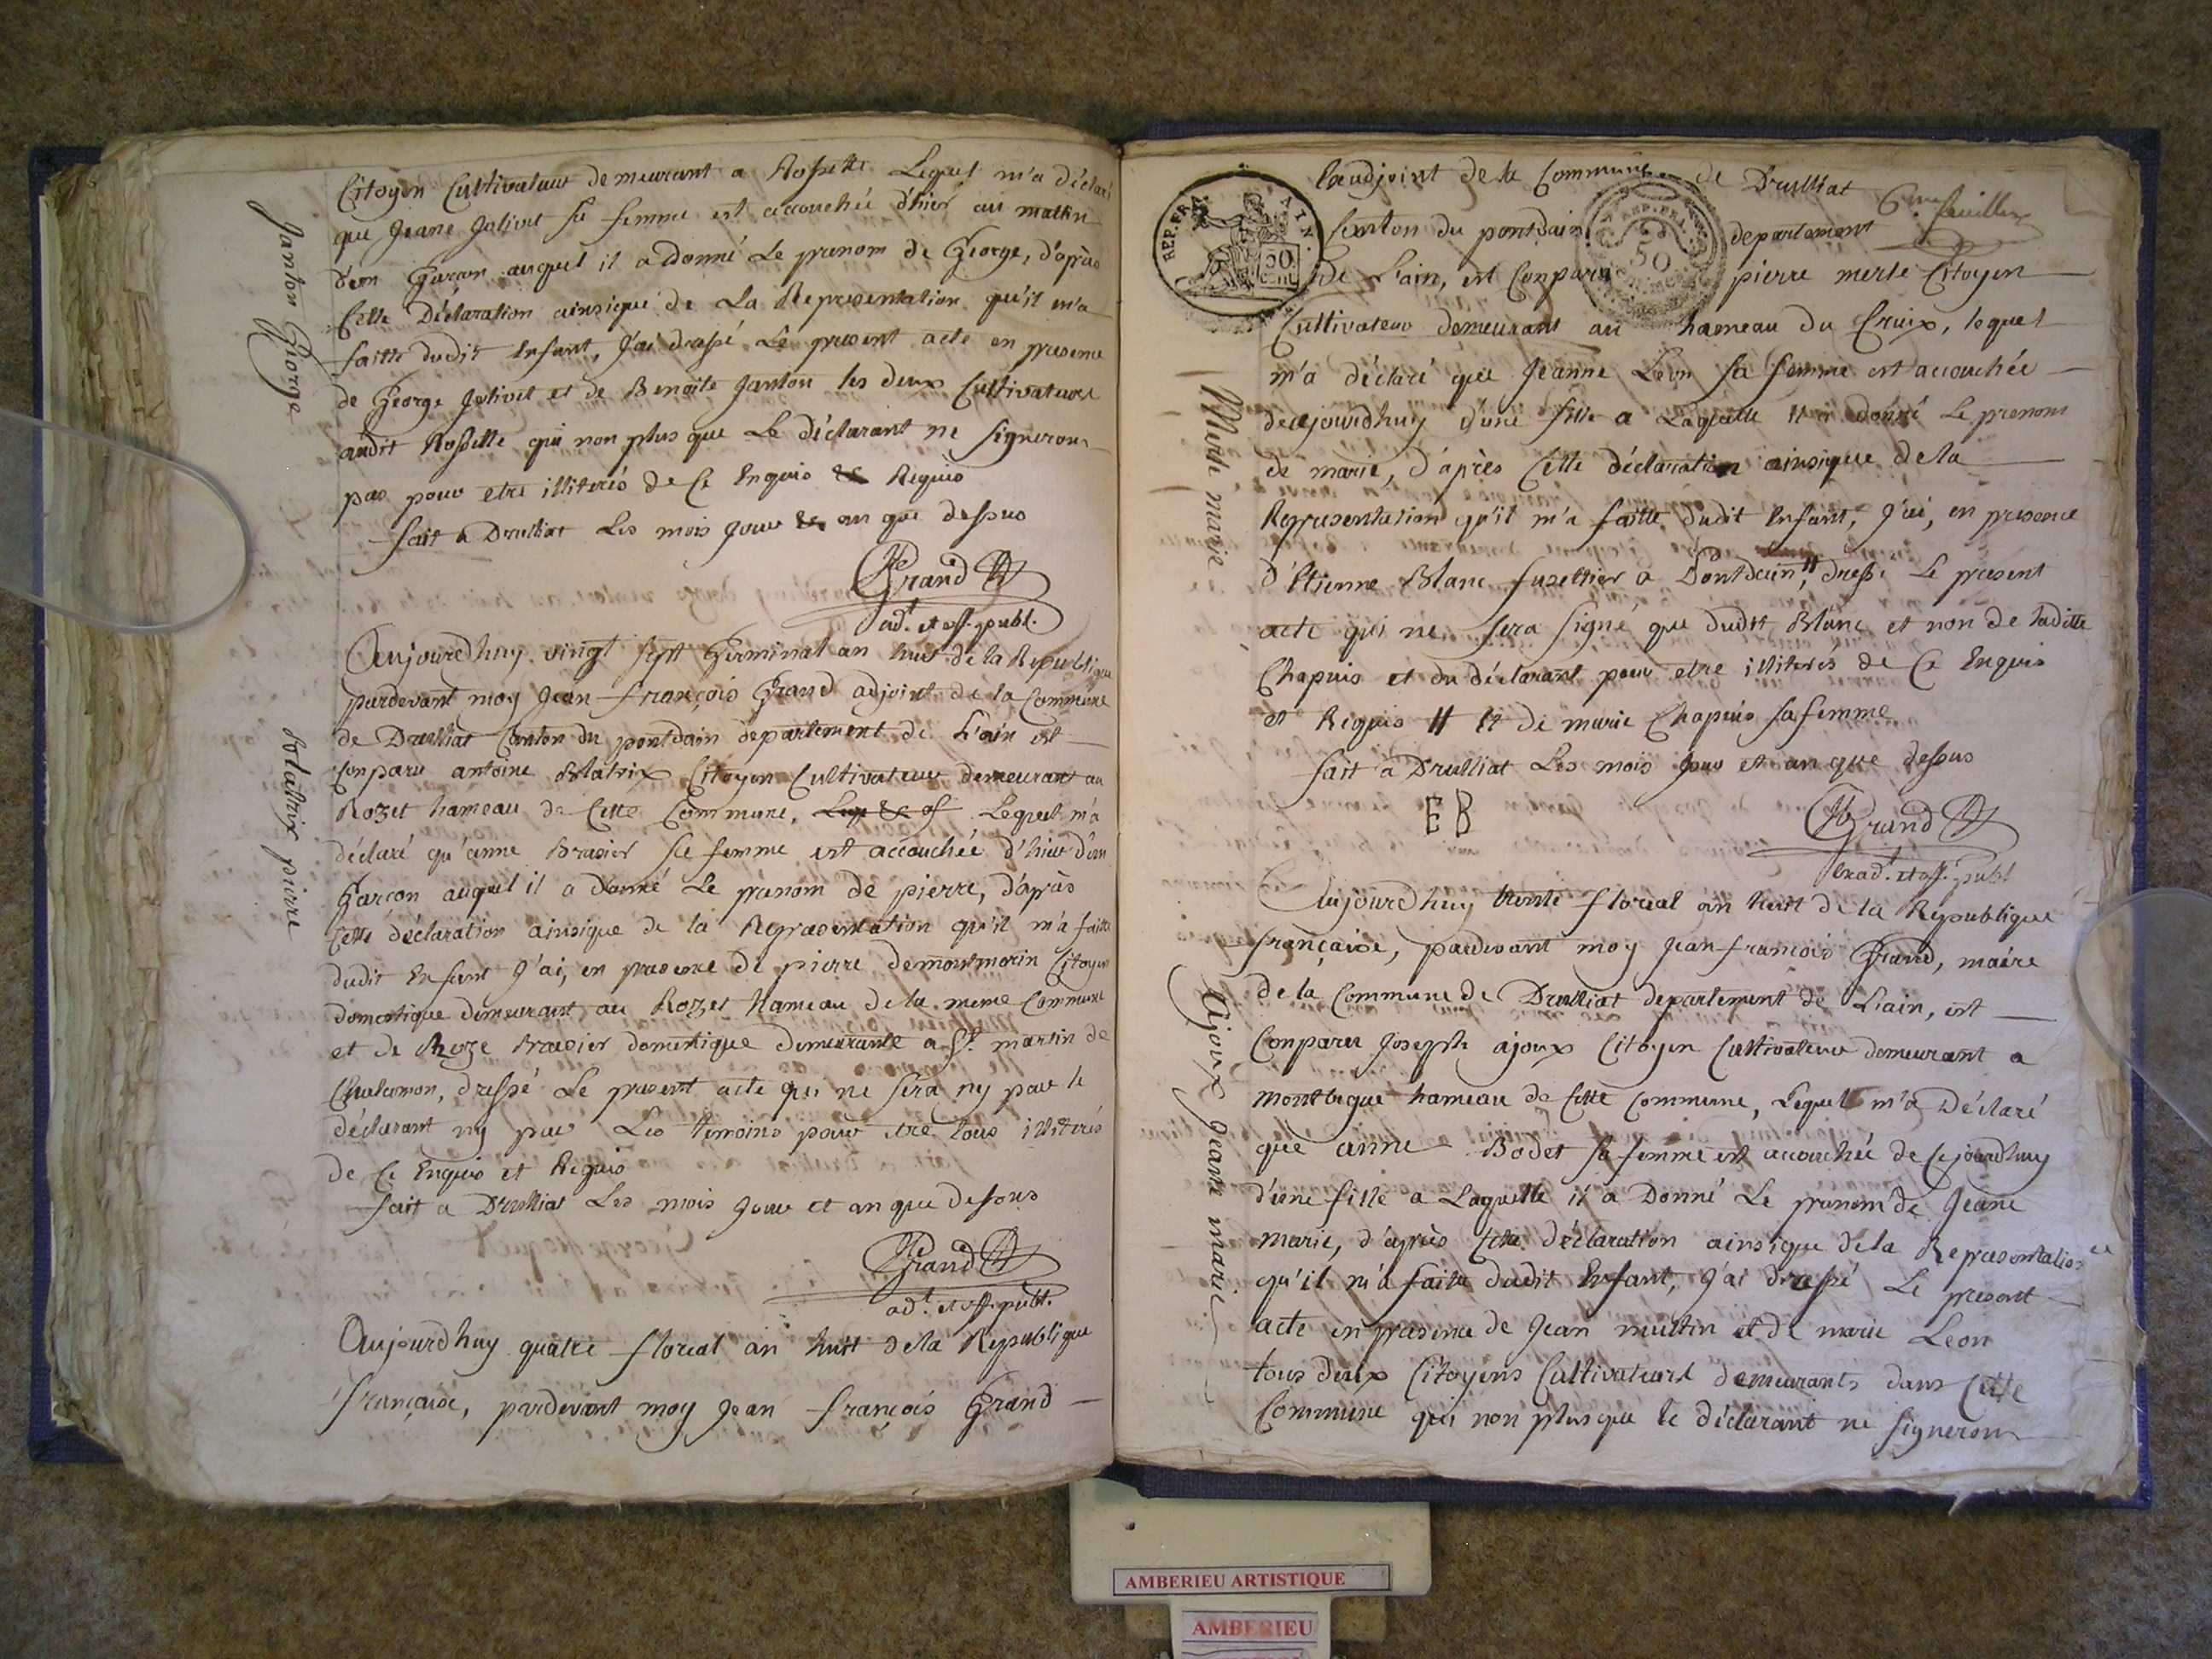 Citoyen Cultivateur demeurant a Rossette Lequel m'a déclaré
que Jeane Jolivet sa femme est accouchée d'hier au matin
d'un Garçon auquel il a donné Le prenom de George, d'après
Cette Déclaration ainsique de La Representation qu'il m'a
faitte dudit Enfant, J'ai dressé Le present acte en presence
de George Jolivet et de Benoite Janton les deux Cultivateurs
audit Rossette qui non plus que Le déclarant ne signeront
pas pour etre illiterés de Ce Enquis & Requis
fait a Druilliat Les mois Jour & an que dessus
Grand
adt. et off. publ.
Janton George
Aujourdhuy vingt sept Germinal an huit de la Republique
pardevant moy Jean-françois Grand adjoint de la Commune
de Druilliat Canton du pontdain departement de L'ain est
Conparu antoine Blatrix Citoyen Cultivateur demeurant au
Rozet hameau de Cette Commune, Lequel m'a
déclaré qu'anne Brasier sa femme est accouchée d'hier d'un
Garçon auquel il a donné Le prenom de pierre, d'après
Cette déclaration ainsique de la Representation qu'il m'a faitte
dudit Enfant J'ai, en presence de pierre demontmorin Citoyen
domestique demeurant au Rozet hameau de la meme Commune
et de Roze Brasier domestique demeurante a St. martin de
Chalamon, dressé Le present acte qui ne sera ny par le
déclarant ny par Les temoins pour etre tous illiterés
de Ce Enquis et Requis
fait a Druilliat Les mois Jour et an que dessus
Grand
adt. et off. publ.
Blatrix pierre
Aujourdhuy quatre floreal an huit de la Republique
française, pardevant moy Jean françois Grand
REP. FRA.
AIN
50
cent
REP. FRA.
50
L'adjoint de la Commune de Druilliat
6me feuillet
Canton du pontdain departement
de L'ain, est Conparu pierre merle Citoyen
Cultivateur demeurant au hameau du Cruix, lequel
m'a déclaré que Jeanne Léon sa femme est accouchée
decejourdhuy d'une fille a Laquelle il a donné Le prenom
de marie, d'après Cette déclaration ainsique de la
Representation qu'il m'a faitte dudit Enfant, J'ai, en presence
d'Etienne Blanc fuseltier a Pontdain,// dressé Le present
acte qui ne sera signé que dudit Blanc et non de laditte
Chapuis et du déclarant pour etre illiterés de Ce Enquis
et Requis // Et de marie Chapuis sa femme
fait a Druilliat Les mois Jour et an que dessus
EB
Grand
adt. et off. publ
Merle marie
Aujourdhuy trente floreal an huit de la Republique
française, pardevant moy Jean-françois Grand, maire
de la Commune de Druilliat departement de L'ain, est
Conparu Joseph ajoux Citoyen Cultivateur demeurant a
montbegue hameau de Cette Commune, Lequel m'a Déclaré
que anne Bodet sa femme est accouchée de Cejourdhuy
d'une fille a Laquelle il a Donné Le prenom de Jeane
marie, d'après Cette déclaration ainsique de la Representation
qu'il m'a faitte dudit Enfant, J'ai dressé Le present
acte en presence de Jean et de marie Leon
tous deux Citoyens Cultivateurs demeurants dans Cette
Commune qui non plus que le déclarant ne signeront
Ajoux Jeane marie
AMBERIEU ARTISTIQUE
AMBERIEU